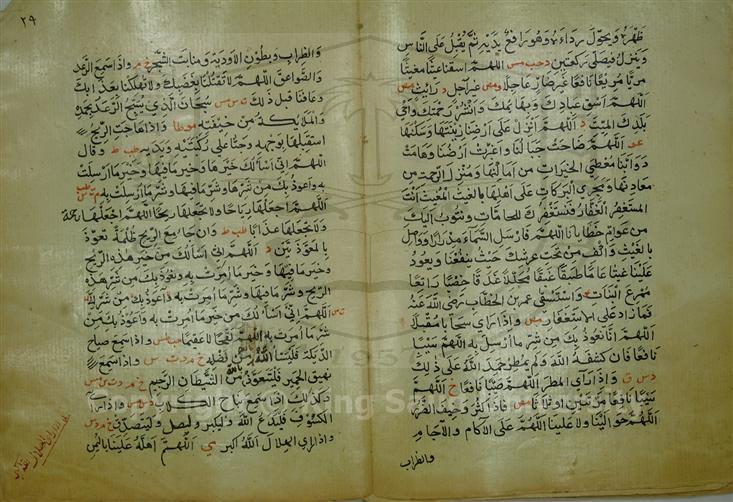 ظهره ويحول رداءه وهو رافع يديه ثم يقبل على الناس
وينزل فيصلى ركعتين د حب مس اللهم اسقنا غيثا مغيثا
مريا مريعا نافعا غير ضار عاجلا غير آجل د رائث
اللهم اسق عبادك وبهائمك وانشر رحمتك واحي
بلدك الميت د اللهم انزل على ارضنا زينتها وسكنها
عو اللهم ضاحت جبالنا واغبرت ارضنا وهامت
دوابنا معطي الخيرات من اماكنها ومنزل الرحمة من
معادنها ومجري البركات على اهلها بالغيث المغيث انت
المستغفر الغفار فنستغفرك للحامات ونتوب اليك
من عوام خطايانا اللهم فارسل السماء مدرارا وواصل
بالغيث واكف من تحت عرشك حيث ينفعنا ويعود
علينا غيثا عاما طبقا غدقا مجللا غدقا خصبا راتعا
ممرع النبات عو واستسقى عمر بن الخطاب رضى الله عنه
فما زاد على الاستغفار واذا راى سحابا مقبلا
اللهم انا نعوذ بك من شر ما ارسل به اللهم سيبا
نافعا فان كشفه الله ولم يمطر حمد الله على ذلك
دس ق واذا راى المطر اللهم صيبا نافعا خ اللهم
سيبا نافعا مرتين او ثلاثا مص فاذا كثر وخيف الضرر
اللهم حوالينا ولا علينا اللهم على الاكام والاجام
والظراب
٢٩
والظراب وبطون الاودية ومنابت الشجر خ م واذا سمع الرعد
والصواعق اللهم لا تقتلنا بغضبك ولا تهلكنا بعذابك
وعافنا قبل ذلك ت س مس سبحان الذي يسبح الرعد بحمده
والملائكة من خيفته موطا واذا هاجت الريح
استقبلها بوجهه وجثا على ركبتيه ويديه طب ط وقال
اللهم انى اسالك خيرها وخير ما فيها وخير ما ارسلت
به واعوذ بك من شرها وشر ما فيها وشر ما ارسلت به م ت س طب
اللهم اجعلها رياحا ولا تجعلها ريحا اللهم اجعلها رحمة
ولا تجعلها عذابا طب ط وان جاء مع الريح ظلمة تعوذ
بالمعوذتين د اللهم انى اسالك من خير هذه الريح
وخير ما فيها وخير ما امرت به ونعوذ بك من شر هذه
الريح وشر ما فيها وشر ما امرت به
اللهم انى اسالك من خير ما امرت به واعوذ بك من
شر ما امرت به اللهم لقحا لا عقيما حب مس واذا سمع صياح
الديكة فليسئل الله من فضله خ م د ت س واذا سمع
نهيق الحمير فليتعوذ بالله من الشيطان الرجيم خ م د ت س مس
وكذلك اذا سمع نباح الكلاب د س مس واذا راى
الكسوف فليدع الله وليكبر وليصل وليتصدق خ م د س
واذا راى الهلال الله اكبر مي اللهم اهله علينا باليمن